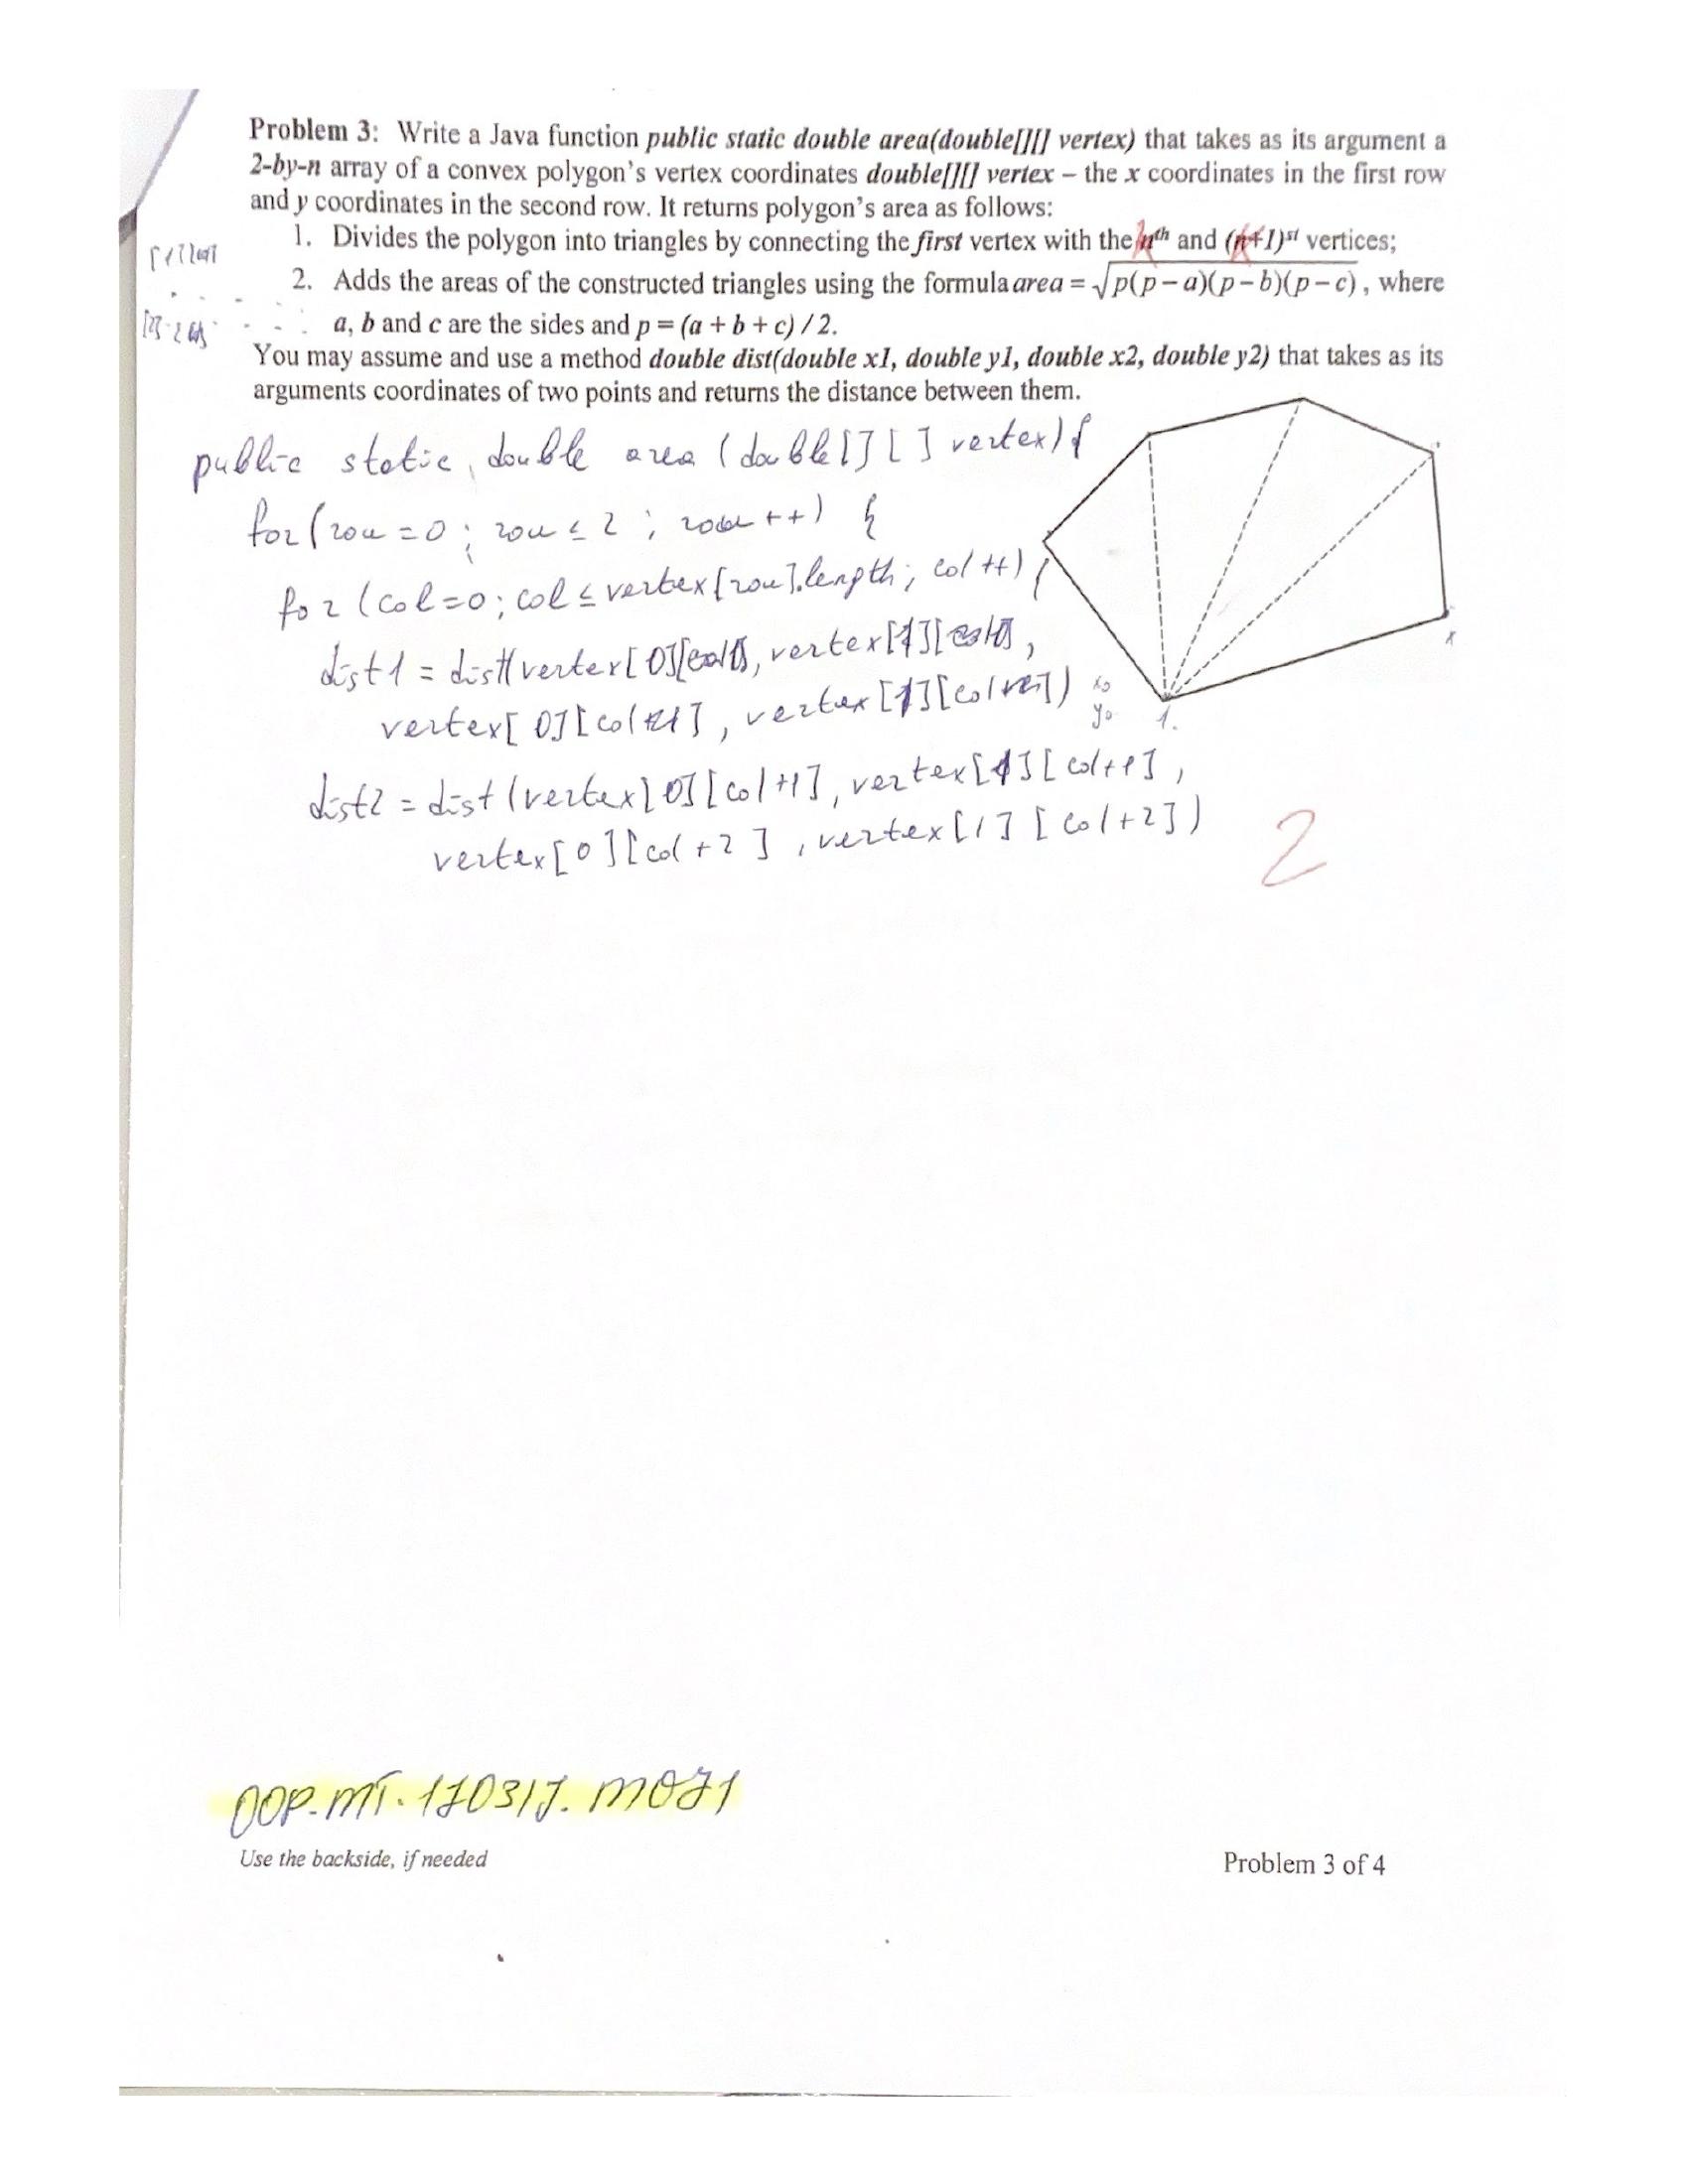 Problem 3: Write a Java function public static double area(double[][] vertex) that takes as its argument a
2-by-n array of a convex polygon's vertex coordinates double[][] vertex – the x coordinates in the first row
and y coordinates in the second row. It returns polygon's area as follows:
1. Divides the polygon into triangles by connecting the first vertex with the nth and (n+1)st vertices;
2. Adds the areas of the constructed triangles using the formula area = √p(p – a)(p – b)(p – c) , where
a, b and c are the sides and p = (a + b + c) / 2.
You may assume and use a method double dist(double x1, double y1, double x2, double y2) that takes as its
arguments coordinates of two points and returns the distance between them.
public static double area (double[] [] vertex) {
for (row = 0 ; row ≤ 2 ; row ++) {
for (col=0; col ≤ vertex[row].length; col ++) {
dist1 = dist(vertex[0][col], vertex[1][col],
vertex[0][col+1], vertex[1][col+1])
x0
y0 1.
dist2 = dist (vertex[0][col+1], vertex[1][col+1],
vertex[0][col+2], vertex[1][col+2])
2
OOP.MT.170317.M071
Use the backside, if needed
Problem 3 of 4